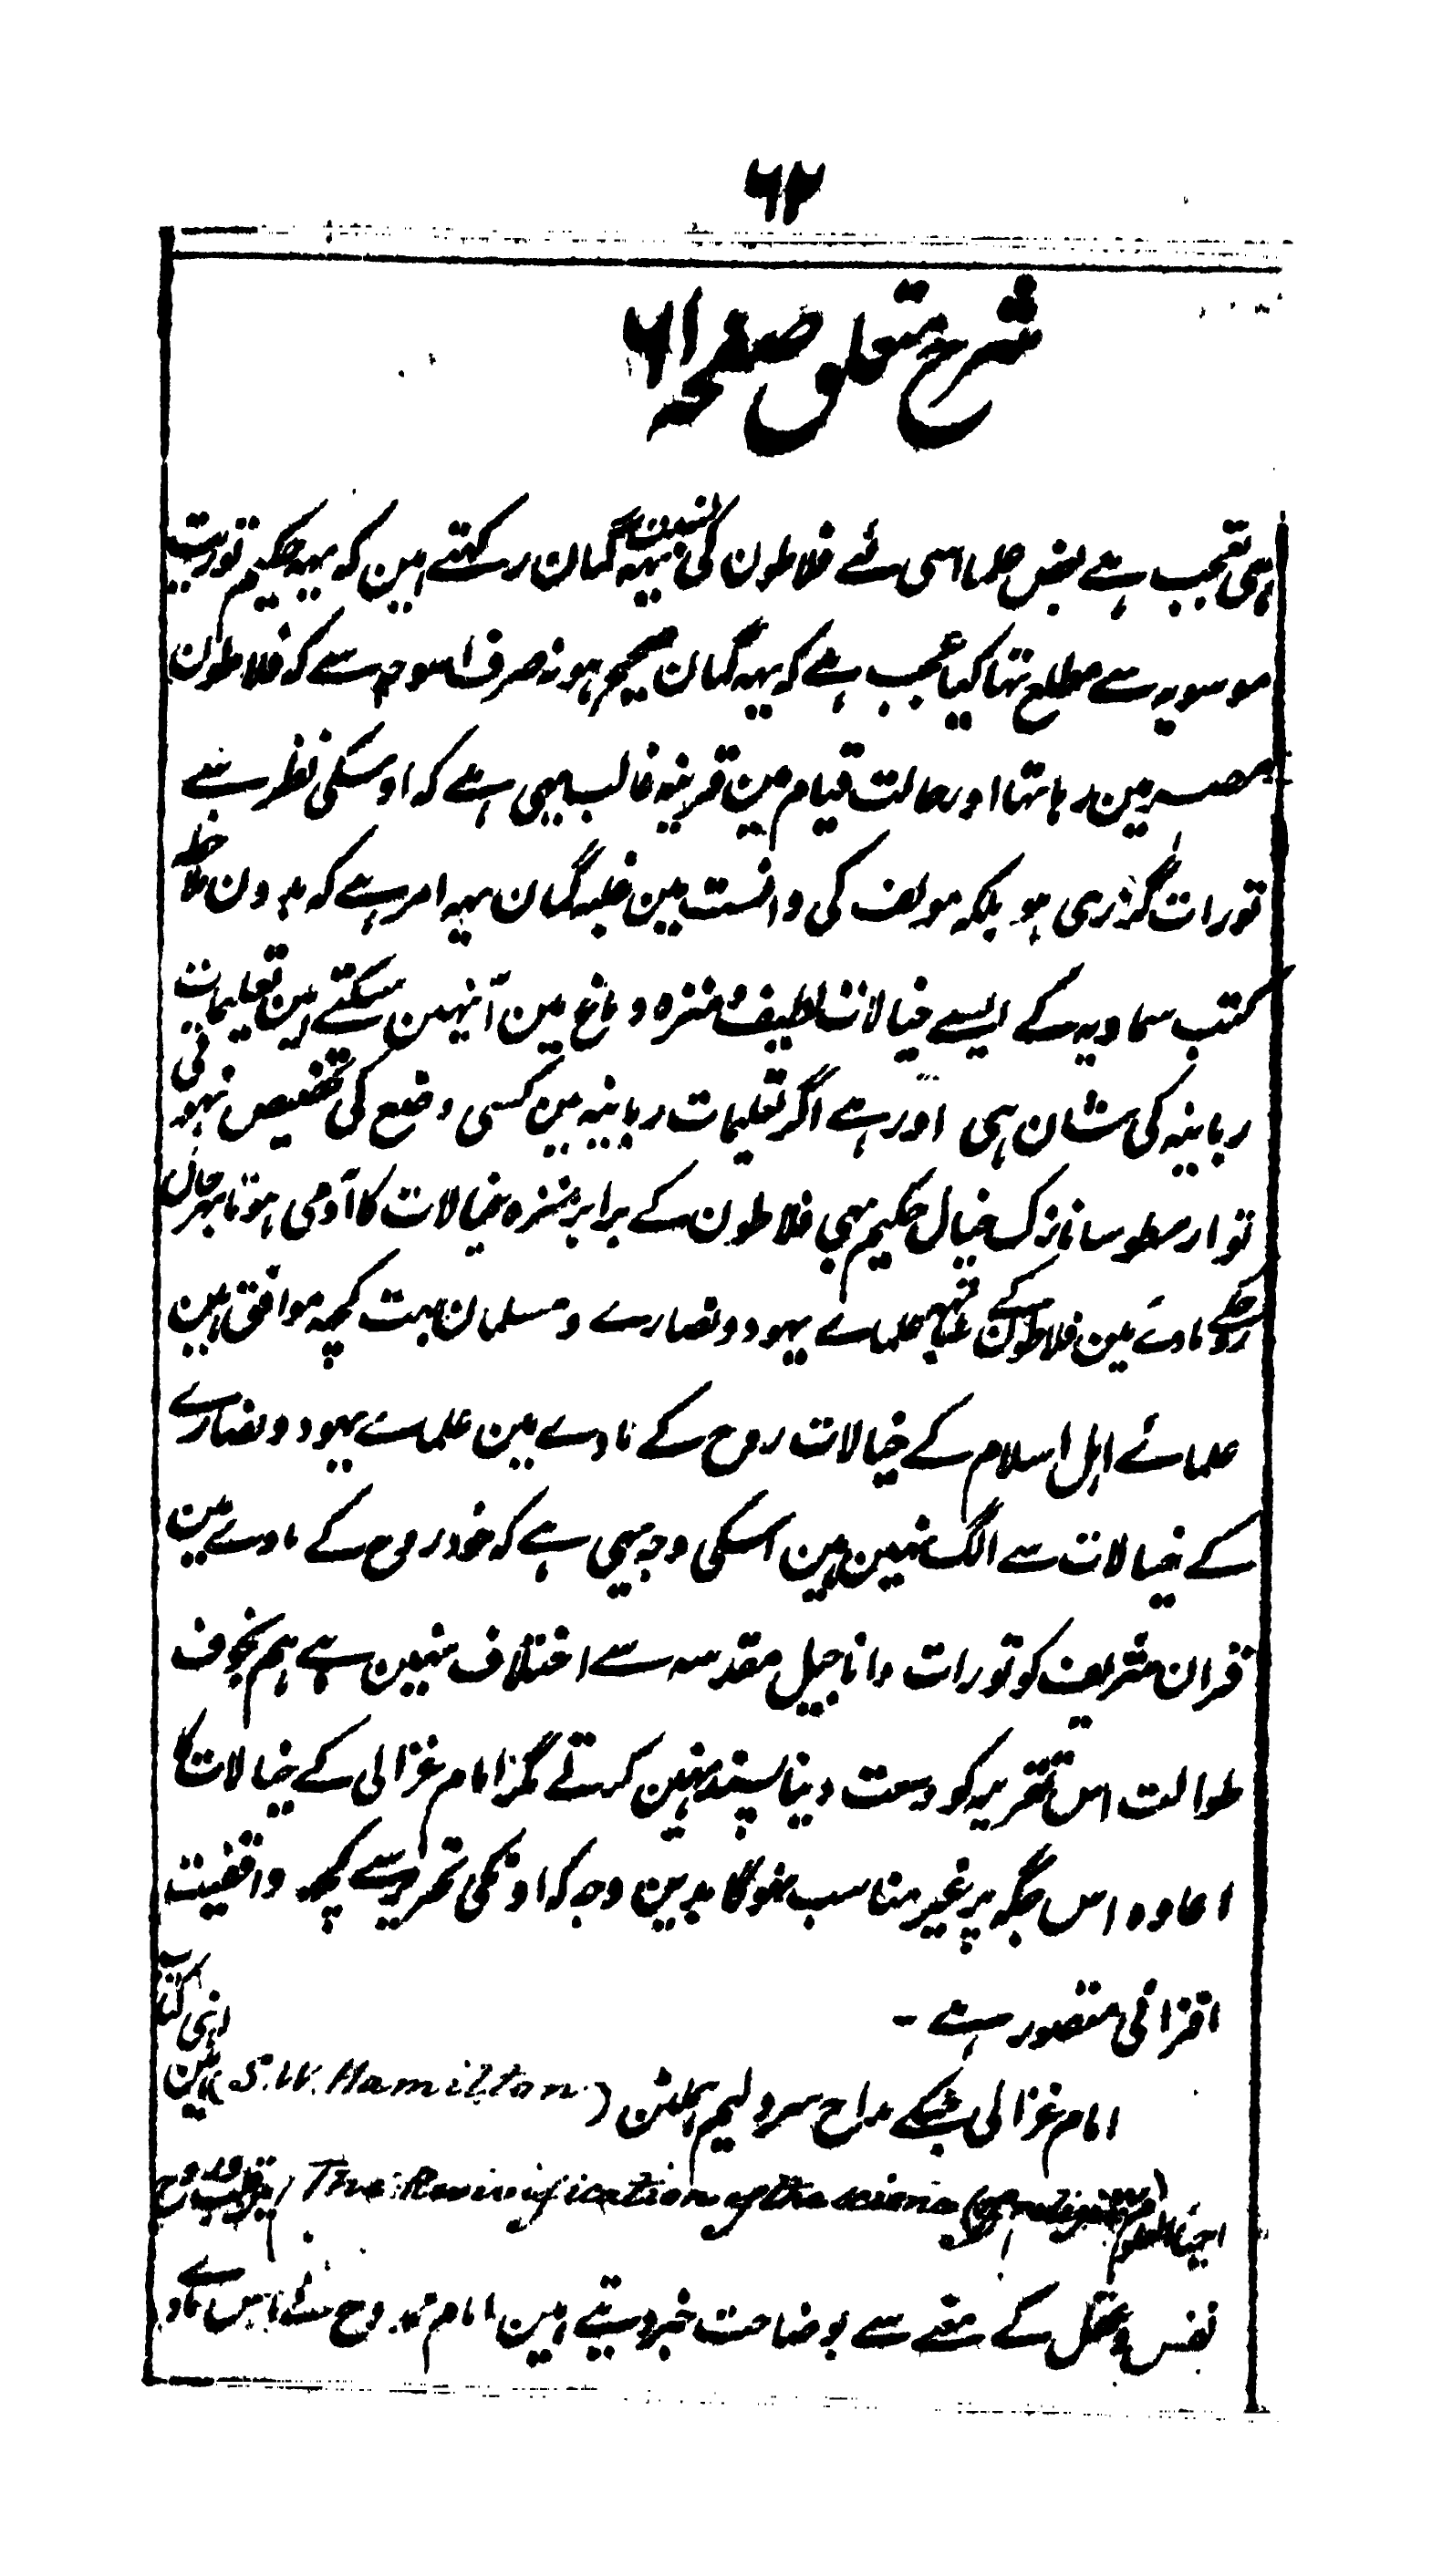 ۶۲
شرح متعلق صفحہ ۶۱
ہی تعجب ہے بعض علما اسی لئے فلاطون کی نسبت یہہ گمان رکہتے ہین کہ یہہ حکیم توریت
موسویہ سے مطلع تہا کیا عجب ہے کہ یہہ گمان صحیح ہو نہ صرف اسوجہ سے کہ فلاطون
مصر مین رہا تہا اور حالت قیام مین قرینہ غالب یہی ہے کہ اوسکی نظر سے
تورات گذری ہو بلکہ مولف کی دانست مین غلبہ گمان یہہ امر ہے کہ بدون ملاحظہ
کتب سماویہ کے ایسے خیالات لطیف و منزہ دماغ مین آ نہین سکتے ہین تعلیمات
ربانیہ کی شان ہی اور ہے اگر تعلیمات ربانیہ مین کسی وضع کی تخصیص نہوتی
تو ارسطو سا نازک خیال حکیم بہی فلاطون کے برابر منزہ خیالات کا آدمی ہوتا بہرحال
روح کے مادے مین فلاطون کے علماے یہود و نصارے و مسلمان بہت کچہ موافق ہین
علمائے اہل اسلام کے خیالات روح کے مادے مین علماے یہود و نصارے
کے خیالات سے الگ نہین ہین اسکی وجہ یہی ہے کہ خود روح کے مادے مین
قران شریف کو تورات و اناجیل مقدسہ سے اختلاف نہین ہے ہم بخوف
طوالت اس تقریر کو وسعت دینا پسند نہین کرتے مگر امام غزالی کے خیالات کا
اعادہ اس جگہ پر غیر مناسب نہوگا بدین وجہ کہ اونکی تحریر سے کچہ واقفیت
افزائی متصور ہے -
امام غزالی جسکے مداح سر ولیم ہملٹن (S.W. Hamilton) ہین اپنی کتاب
احیاء العلوم (The Revivification of the science of religion) مین قلب و روح و
نفس و عقل کے معنے سے بوضاحت خبر دیتے ہین امام ممدوح نے اس مادے